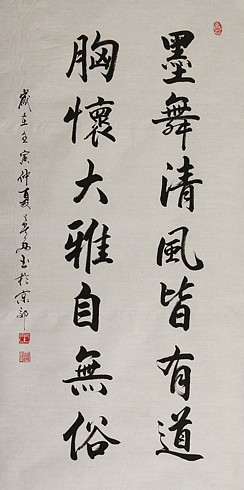 墨舞清風皆有道
胸懷大雅自無俗
歲在壬寅仲夏書於京郊